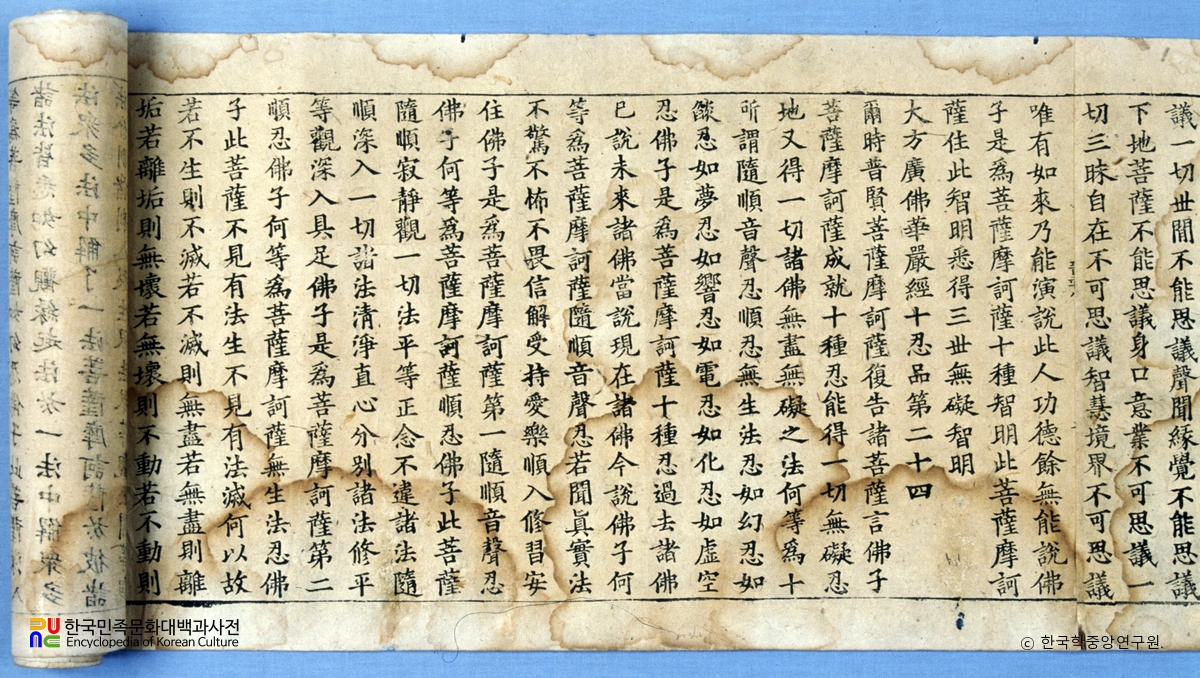 議一切世間不能思議聲聞緣覺不能思議
下地菩薩不能思議身口意業不可思議一
切三昧自在不可思議智慧境界不可思議
唯有如來乃能演說此人功德餘無能說佛
子是為菩薩摩訶薩十種智明此菩薩摩訶
薩住此智明悉得三世無礙智明
大方廣佛華嚴經十忍品第二十四
爾時普賢菩薩摩訶薩復告諸菩薩言佛子
菩薩摩訶薩成就十種忍能得一切無礙忍
地又得一切諸佛無盡無礙之法何等為十
所謂隨順音聲忍順忍無生法忍如幻忍如
燄忍如夢忍如響忍如電忍如化忍如虛空
忍佛子是為菩薩摩訶薩十種忍過去諸佛
已說未來諸佛當說現在諸佛今說佛子何
等為菩薩摩訶薩隨順音聲忍若聞眞實法
不驚不怖不畏信解受持愛樂順入修習安
住佛子是為菩薩摩訶薩第一隨順音聲忍
佛子何等為菩薩摩訶薩順忍佛子此菩薩
隨順寂靜觀一切法平等正念不違諸法隨
順深入一切諸法清淨直心分別諸法修平
等觀深入具足佛子是為菩薩摩訶薩第二
順忍佛子何等為菩薩摩訶薩無生法忍佛
子此菩薩不見有法生不見有法滅何以故
若不生則不滅若不滅則無盡若無盡則離
垢若離垢則無壞若無壞則不動若不動則
한국민족문화대백과사전
Encyclopedia of Korean Culture
ⓒ 한국학중앙연구원.